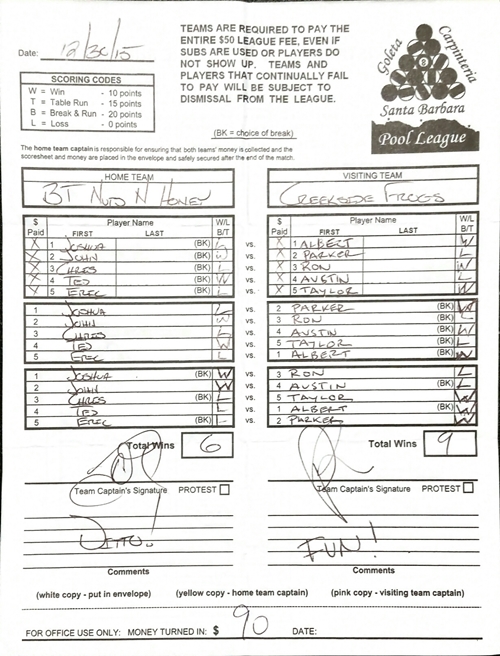 Date: 12/30/15
TEAMS ARE REQUIRED TO PAY THE
ENTIRE $50 LEAGUE FEE, EVEN IF
SUBS ARE USED OR PLAYERS DO
NOT SHOW UP. TEAMS AND
PLAYERS THAT CONTINUALLY FAIL
TO PAY WILL BE SUBJECT TO
DISMISSAL FROM THE LEAGUE.
(BK = choice of break)
SCORING CODES
W = Win - 10 points
T = Table Run - 15 points
B = Break & Run - 20 points
L = Loss - 0 points
Goleta
Carpinteria
8
Santa Barbara
Pool League
The home team captain is responsible for ensuring that both teams' money is collected and the
scoresheet and money are placed in the envelope and safely secured after the end of the match.
HOME TEAM
BT NUTS N HONEY
VISITING TEAM
CREEKSIDE FROGS
$ Paid Player Name FIRST LAST W/L B/T
$ Paid Player Name FIRST LAST W/L B/T
X 1 JOSHUA (BK) L vs. X 1 ALBERT W
X 2 JOHN (BK) W vs. X 2 PARKER L
X 3 CHRIS (BK) L vs. X 3 RON W
X 4 TED (BK) W vs. X 4 AUSTIN L
X 5 EREC (BK) L vs. X 5 TAYLOR W
1 JOSHUA L vs. 2 PARKER (BK) W
2 JOHN W vs. 3 RON (BK) L
3 CHRIS L vs. 4 AUSTIN (BK) W
4 TED W vs. 5 TAYLOR (BK) L
5 EREC L vs. 1 ALBERT (BK) W
1 JOSHUA (BK) W vs. 3 RON L
2 JOHN W vs. 4 AUSTIN (BK) L
3 CHRIS (BK) L vs. 5 TAYLOR W
4 TED L vs. 1 ALBERT (BK) W
5 EREC (BK) L vs. 2 PARKER W
Total Wins 6
Total Wins 9
Team Captain's Signature PROTEST
Team Captain's Signature PROTEST
DITTO!
FUN!
Comments
Comments
(white copy - put in envelope) (yellow copy - home team captain) (pink copy - visiting team captain)
FOR OFFICE USE ONLY: MONEY TURNED IN: $ 90 DATE: